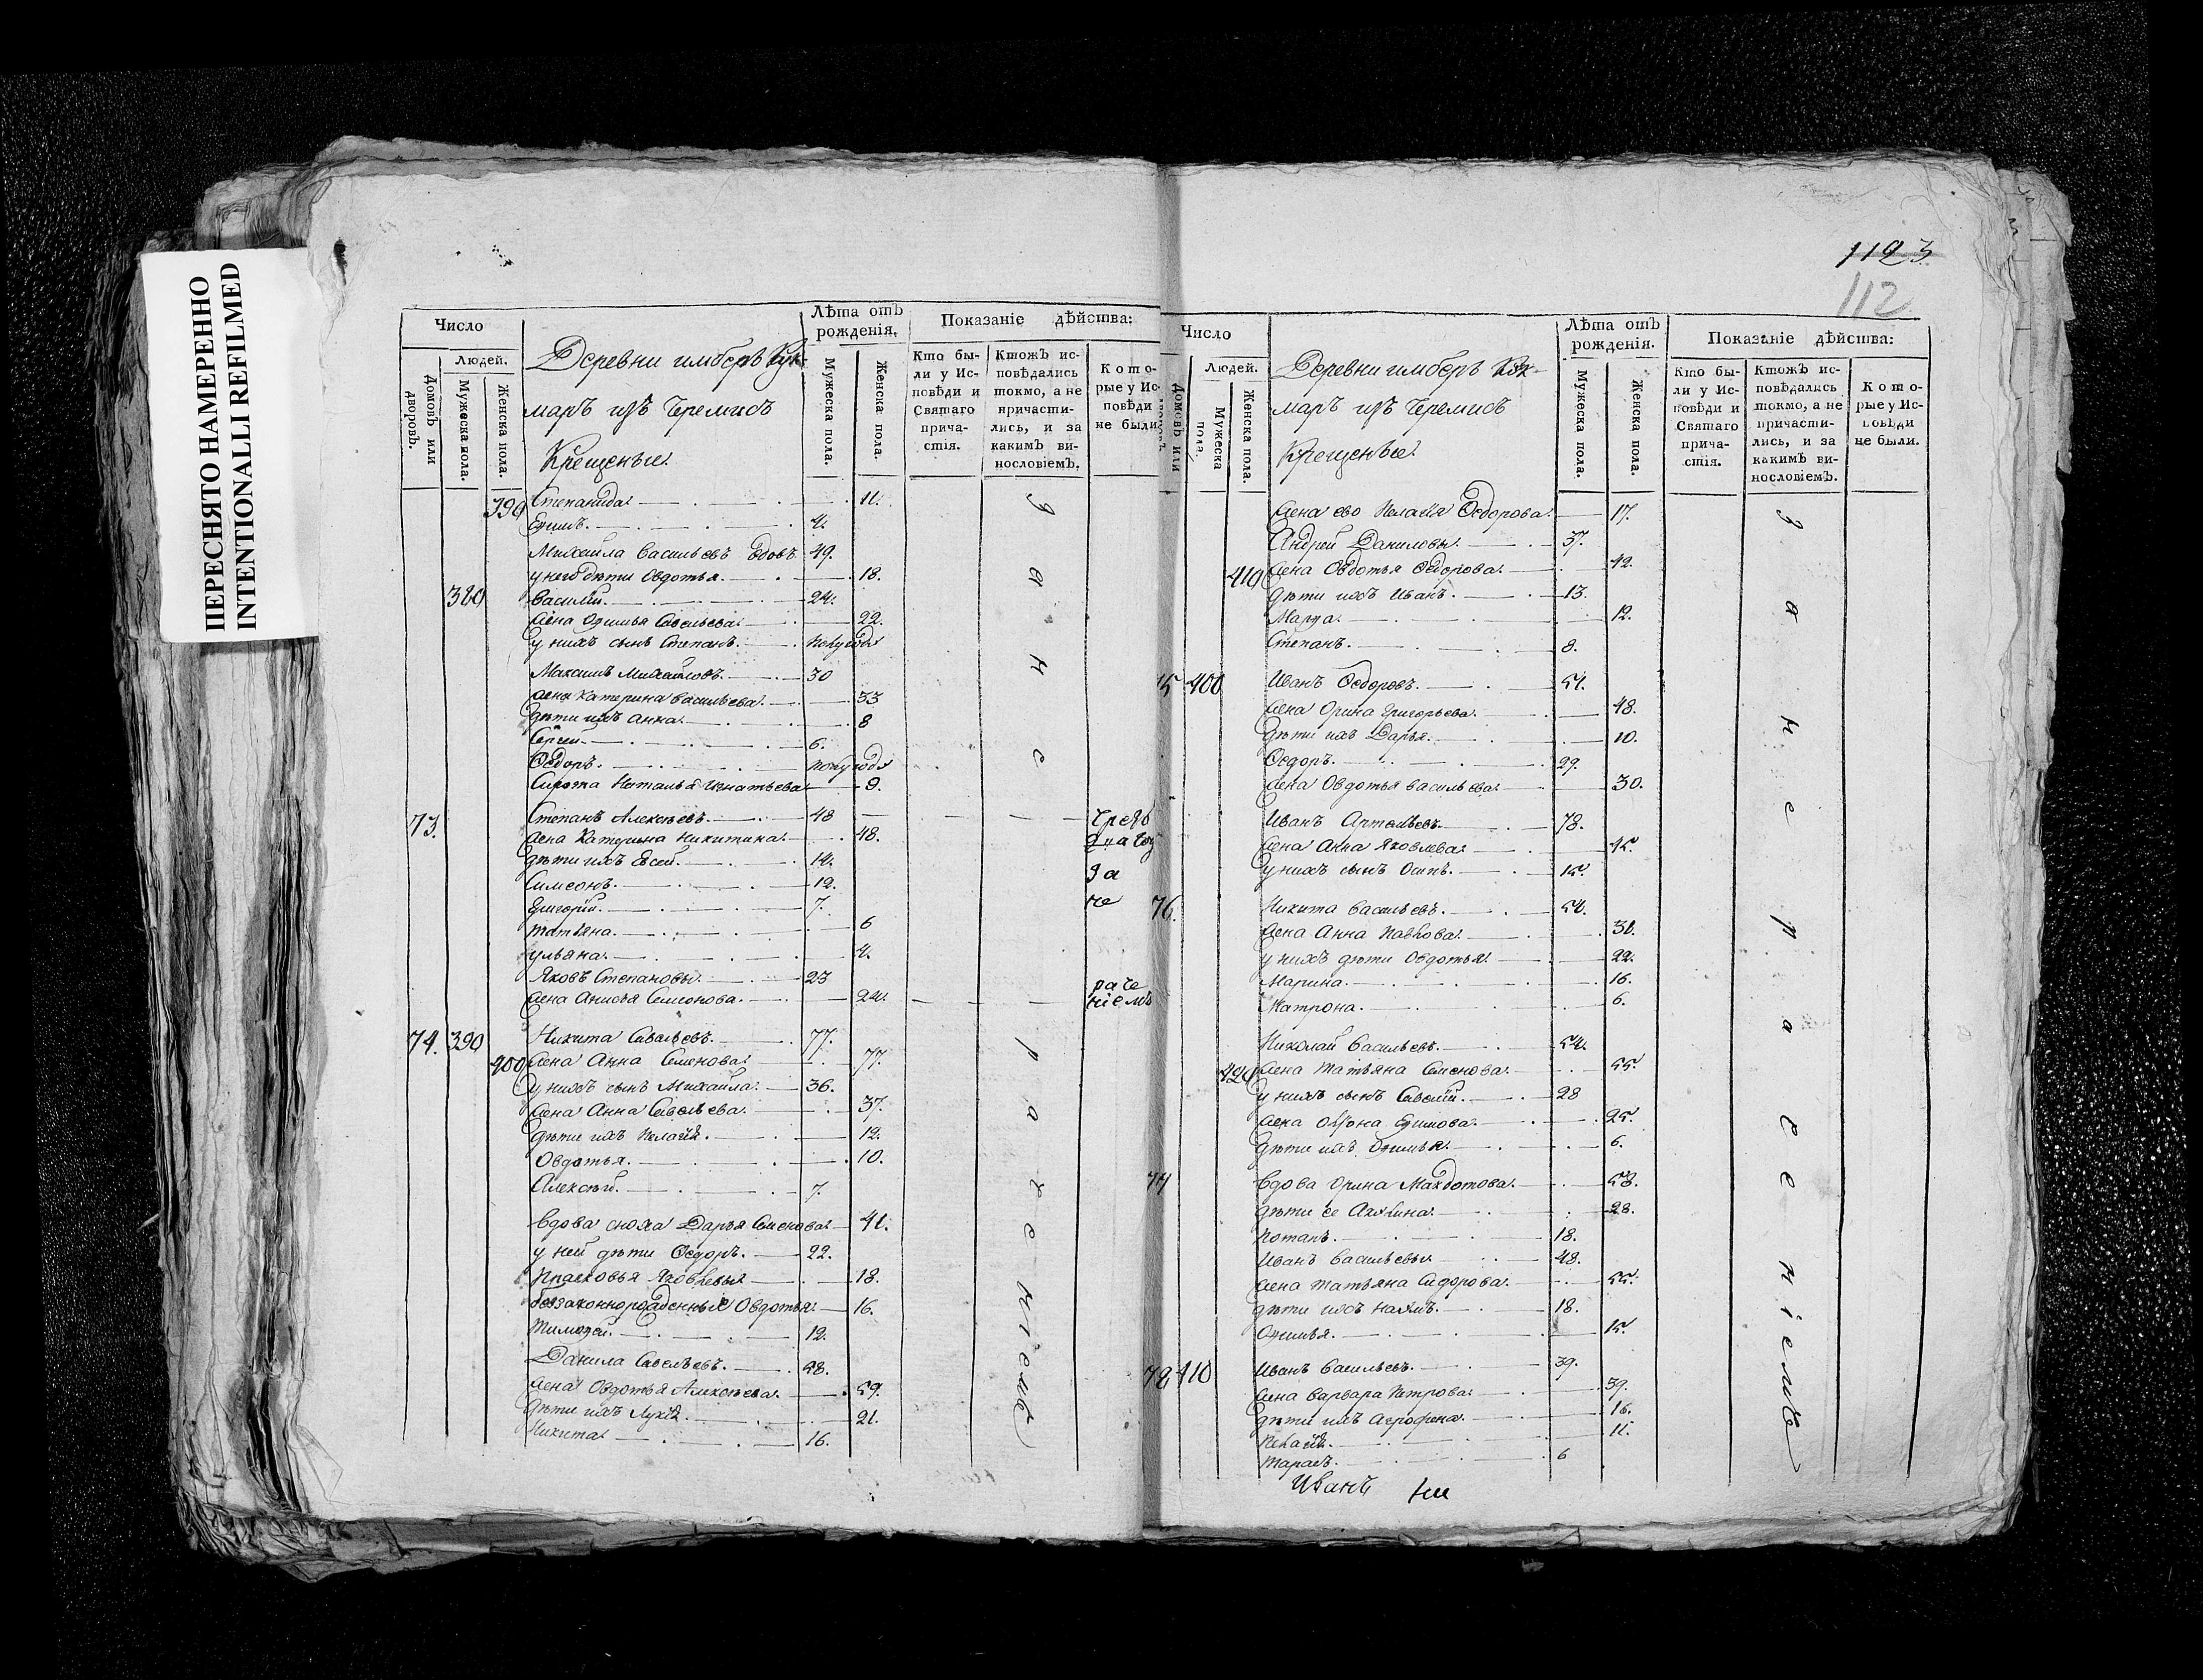 ПЕРЕСНЯТО НАМЕРЕННО
INTENTIONALLI REFILMED
Число
Людей.
Домовъ или дворовъ.
Мужеска пола.
Женска пола.
Деревни имберъ Кук-
маръ изъ Черемисъ
Крещеныи.
Лѣта отъ рождения.
Мужеска пола.
Женска пола.
Показаніе дѣйства:
Кто бы-
ли у Ис-
повѣди и
Святаго
прича-
стія.
Ктожъ ис-
повѣдались
токмо, а не
причасти-
лись, и за
какимъ ви-
нословіемъ.
Кото-
рые у Ис-
повѣди
не были
390 Степанида. 11.
Ефимъ. 4.
Михайла Васильевъ вдовъ. 49.
у него дѣти Овдотья. 18.
380 Василій. 24.
Жена Офимья Савельева. 22.
у нихъ сынъ Степанъ. полугода
Максимъ Михайловъ. 30
жена Катерина Васильева. 33
дѣти ихъ Анна. 8
Сергей. 6.
Ѳедоръ. полугода
Сирота Наталья Игнатьева 9.
73. Степанъ Алексѣевъ. 48
Жена Катерина Никитина. 48.
дѣти ихъ Евсей. 14.
Симеонъ. 12.
Григорій. 7.
Татьяна. 6
Ульяна. 4.
Яковъ Степановы. 23
Жена Анисья Семенова. 24.
74. 390 Никита Савельевъ. 77.
400 Жена Анна Семенова. 77.
у нихъ сынъ Михайла. 36.
Жена Анна Савельева. 37.
дѣти ихъ Пелагія. 12.
Овдотья. 10.
Алексѣй. 7.
Вдова сноха Дарья Семенова 41.
у ней дѣти Ѳедоръ. 22.
Прасковья Яковлевы 18.
беззаконнорожденные Овдотья. 16.
Тимофей. 12.
Данила Савельевъ. 58.
Жена Овдотья Алексѣева. 59.
дѣти ихъ Лукія. 21.
Никита 16.
за не ра че ніемъ
за не ра че ніемъ
1123
112
Число
Людей.
Домовъ или
Мужеска пола.
Женска пола.
Деревни имберъ Кук-
маръ изъ Черемисъ
Крещеныи.
Лѣта отъ рождения.
Мужеска пола.
Женска пола.
Показаніе дѣйства:
Кто бы-
ли у Ис-
повѣди и
Святаго
прича-
стія.
Ктожъ ис-
повѣдались
токмо, а не
причасти-
лись, и за
какимъ ви-
нословіемъ.
Кото-
рые у Ис-
повѣди
не были.
Жена ево Пелагія Ѳедорова. 17.
Андрей Даниловы. 37.
410 Жена Овдотья Ѳедорова. 42.
дѣти ихъ Иванъ. 13.
Марфа. 12.
Степанъ. 8.
75 400 Иванъ Ѳедоровъ. 51.
Жена Орина Григорьева. 48.
дѣти ихъ Дарья. 10.
Ѳедоръ. 29.
жена Овдотья Васильева. 30.
Иванъ Артемьевъ 78.
Жена Анна Яковлева. 45.
у нихъ сынъ Осипъ. 15.
76. Никита Васильевъ. 54.
Жена Анна Павлова.
у нихъ дѣти Овдотья. 22.
Марина. 16.
Матрона. 6.
Николай Васильевъ. 54.
420 Жена Татьяна Семенова. 55.
у нихъ сынъ Савелій. 28
Жена Ефимова. 25.
дѣти ихъ Офимья. 6.
77 Вдова Орина 58.
дѣти ее Акилина. 28.
Потапъ. 18.
Иванъ Васильевы 48.
Жена Татьяна Сидорова. 55.
дѣти ихъ Наумъ. 18.
Офимья. 15.
78 410 Иванъ Васильевъ. 39.
Жена Варвара Петрова. 39.
дѣти ихъ Агрофена. 16.
Пелагія. 11.
Тарасъ. 6
за не ра че ніемъ
Иванъ